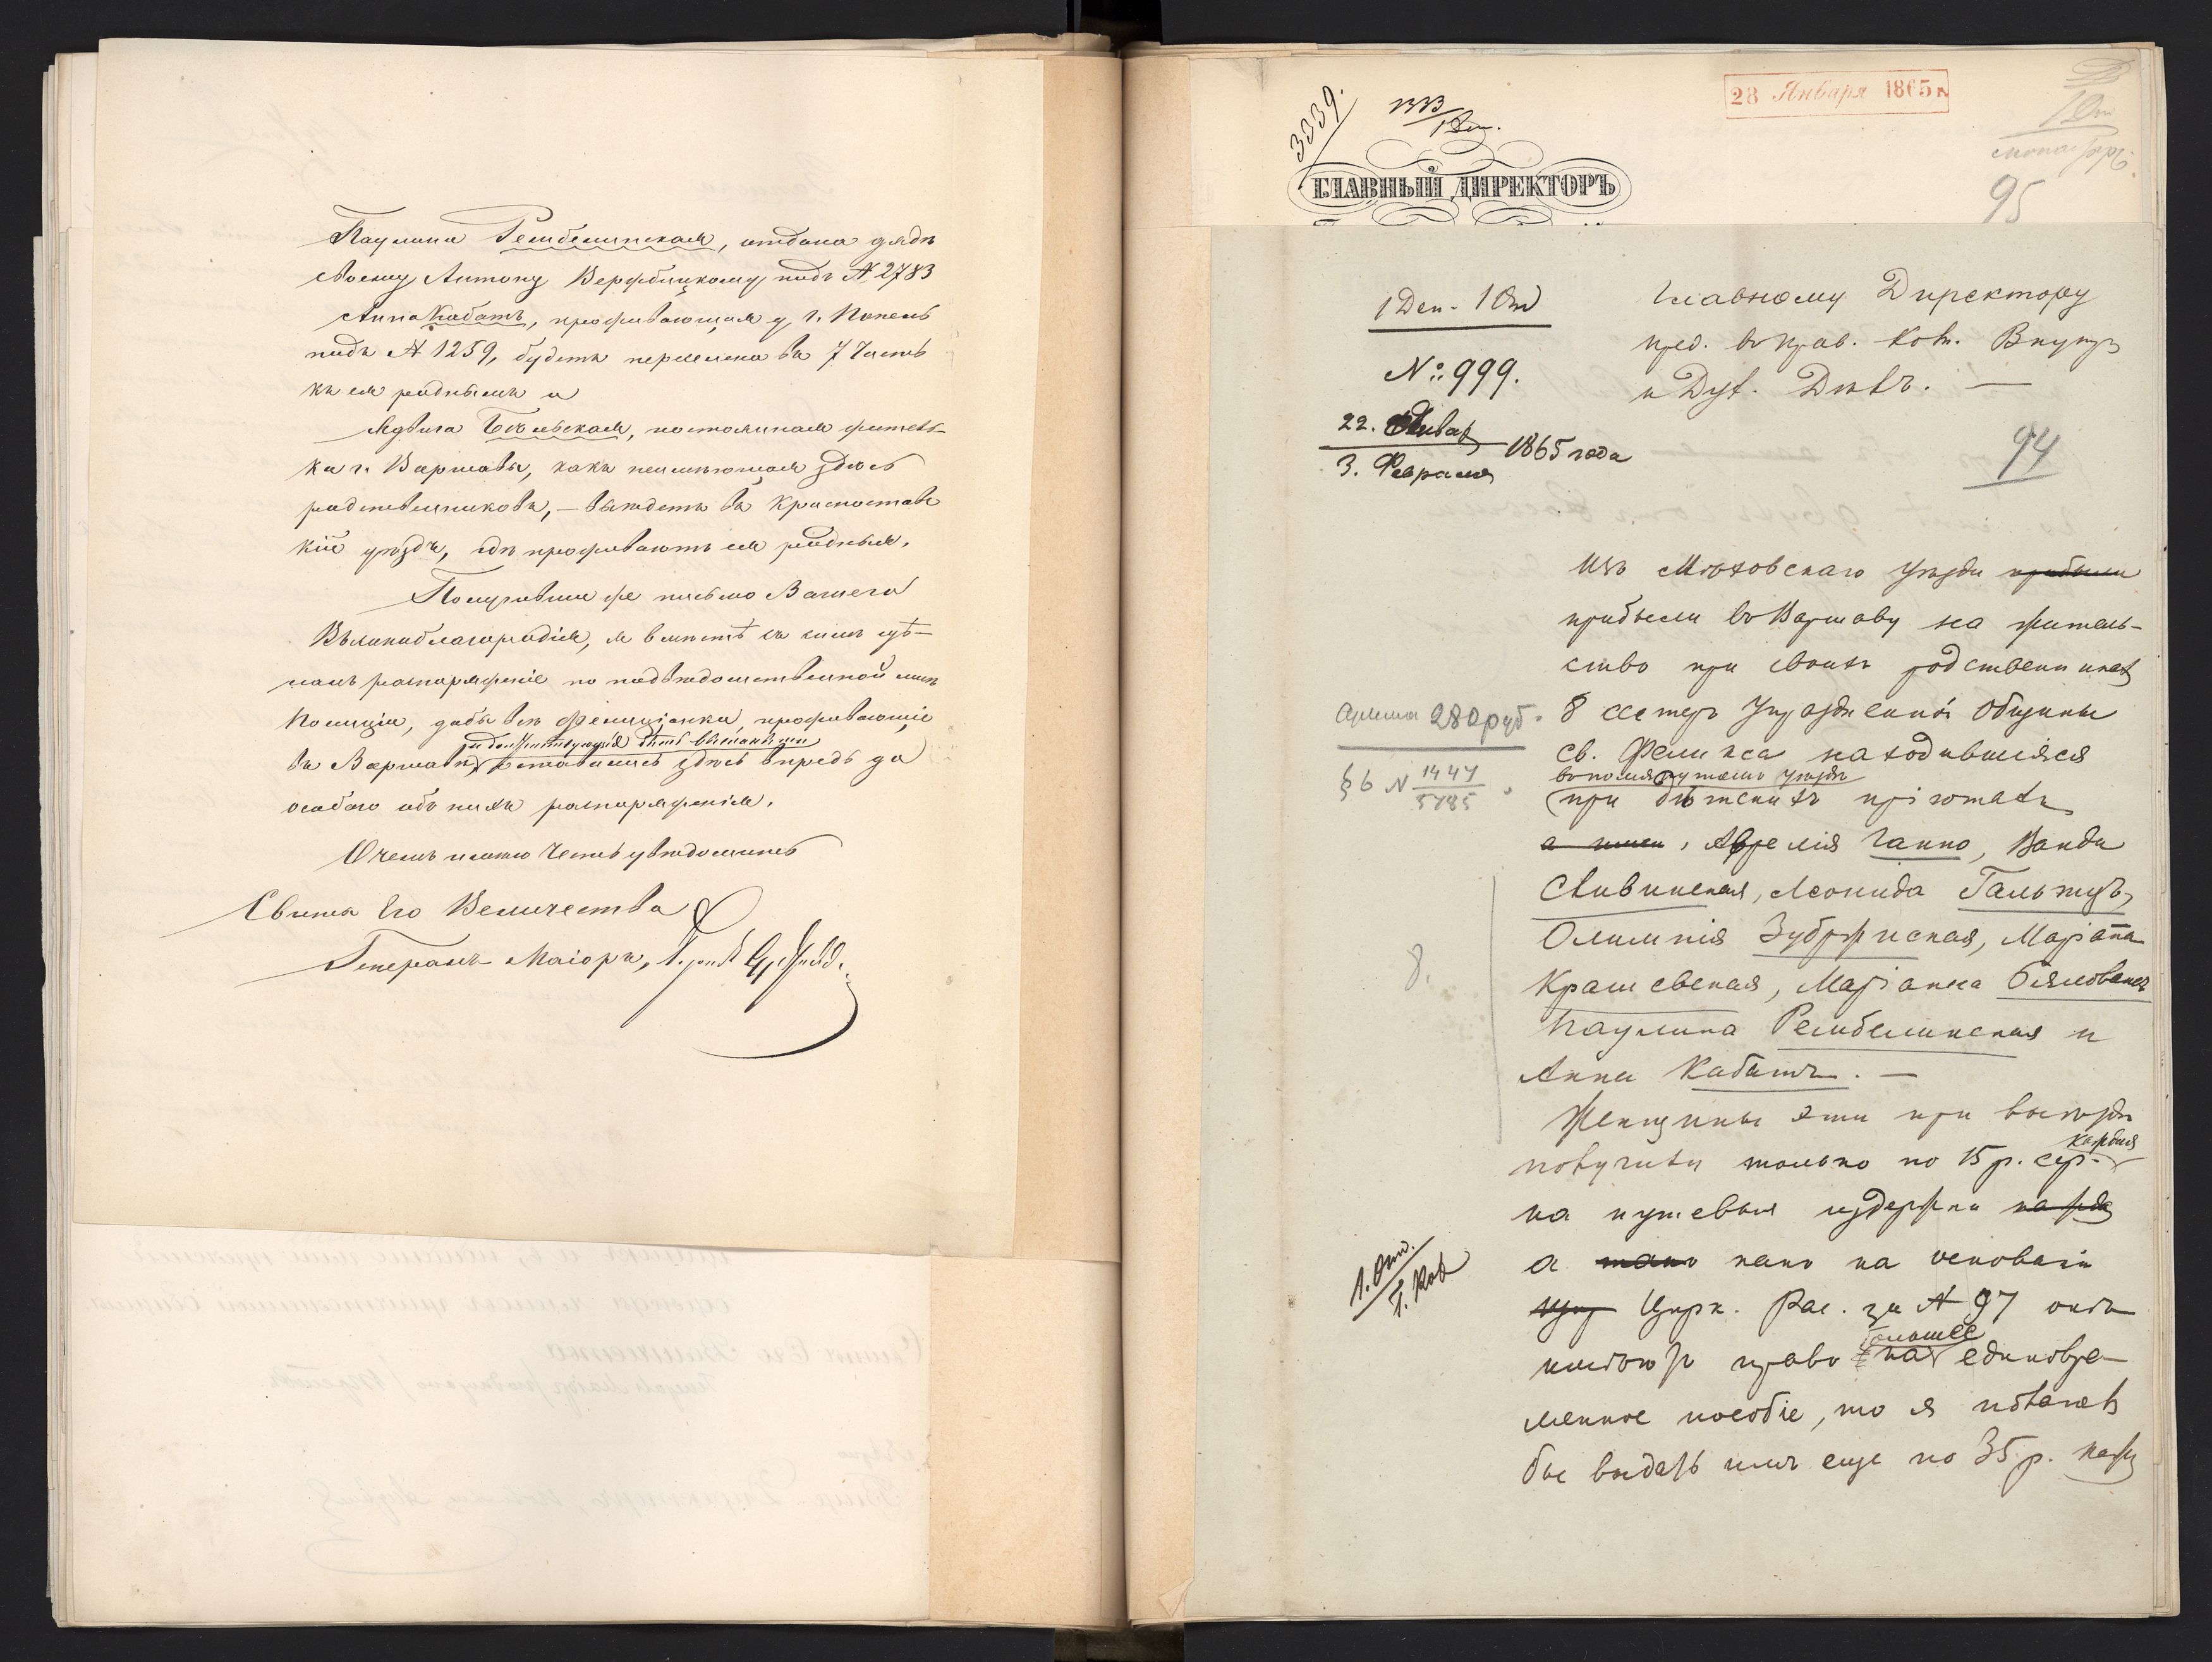 Паулина Рембелинская, отдана дядѣ
своему Антону Вержбицкому подъ № 2783
Анна Кабатъ, проживающая у г. Попель
подъ № 1259, будетъ перемена въ 7 Часть
къ ея роднымъ и
Ядвига Бельская, постоянная житель-
ка г. Варшавы, какъ неимѣющая здѣсь
родственниковъ, — выѣдетъ въ Красностав-
кій уѣздъ, гдѣ проживаютъ ея родныя.
Получивши же письмо Вашего
Высокоблагородія, я вмѣстѣ съ симъ сдѣ-
лалъ распоряженіе по подвѣдомственной мнѣ
Полиціи, дабы всѣ Фелиціанки, проживающіе
въ Варшавѣ, оставались здѣсь впредь до
особаго объ нихъ распоряженія.
О чемъ имѣю честь увѣдомить
Свиты Его Величества
Генералъ Маіоръ,
3339.
28 Января 1865
ГЛАВНЫЙ ДИРЕКТОРЪ
95
1 Деп. 1 От
№ 999.
22. Январ
3. Февраля 1865 года
Главному Директору
пред. въ Прав. Ком. Внутр
и Дух. Дѣлъ. —
94
Изъ Мѣховскаго Уѣзда прибыли
прибыли въ Варшаву на житель-
ство при своихъ родственникахъ
8 сестеръ Упраздненной Общины
св. Феликса находившіяся
въ помянутомъ уѣздѣ
при дѣтскихъ пріютахъ
280 руб.
§ 6 № 1447
5785
Аврелія Ганно, Ванда
Сливинская, Леонида Гальтцъ,
Олимпія Зубржиская, Маріана
Крашевская, Маріанна Бялованс
Паулина Рембелинская и
Анна Кабатъ. —
8.
Женщины эти при выѣздѣ
получили только по 15 р. сер. каждая
на путевыя издержки
а такъ какъ на основаніи
Цирк. Рас. за № 97 онѣ
имѣютъ право на большее единовре-
менное пособіе, то я полагалъ
бы выдать имъ еще по 35 р. кажд
1. Отд.